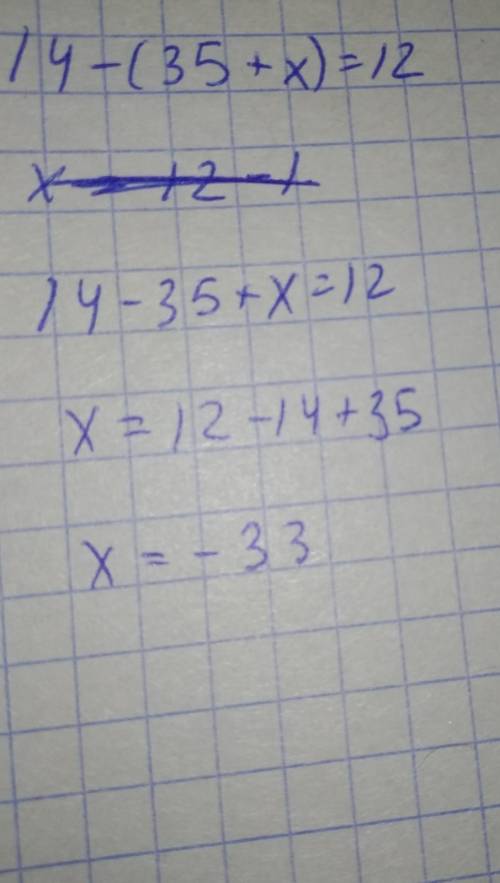 14-(35+x)=12
14-35+x=12
x=12-14+35
x=-33